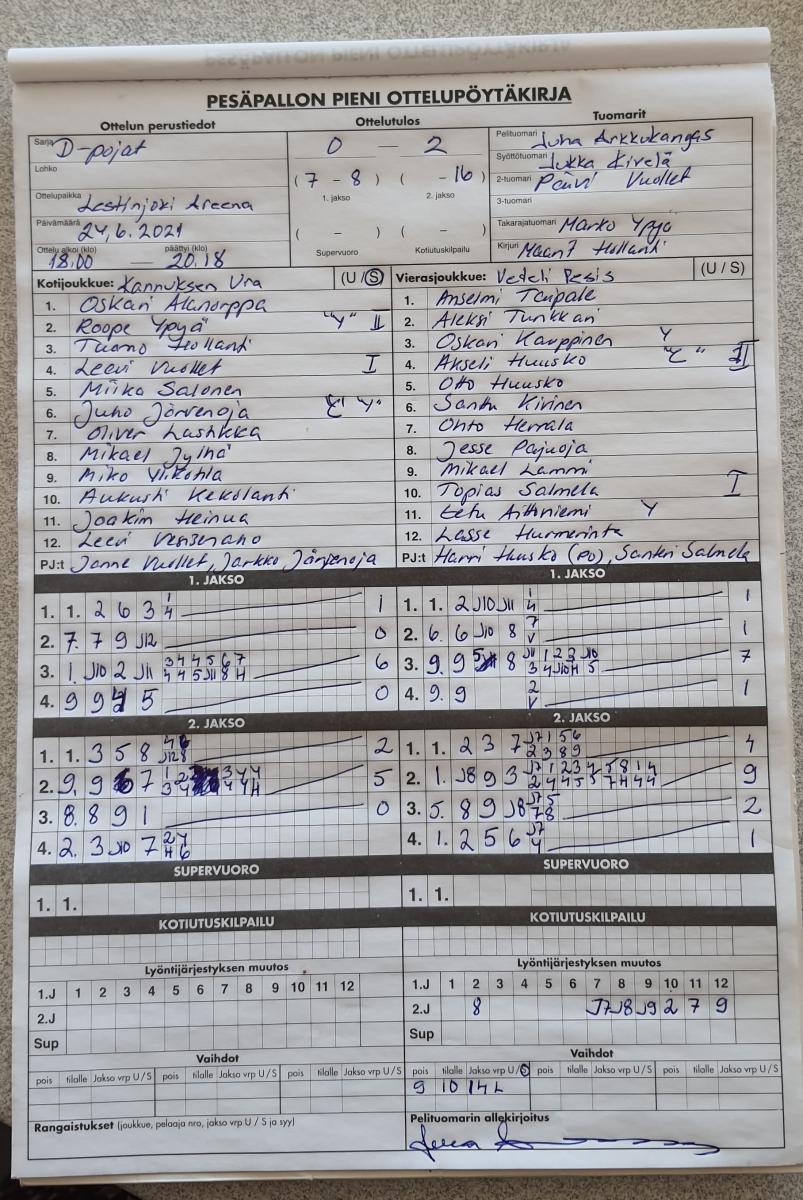 PESÄPALLON PIENI OTTELUPÖYTÄKIRJA
Ottelun perustiedot
Sarja D-pojat
Lohko
Ottelupaikka Lestinjoki Areena
Päivämäärä 24.6.2021
Ottelu alkoi (klo) päättyi (klo)
18.00 — 20.18
Ottelutulos
0 — 2
( 7 - 8 ) ( - 16 )
1. jakso 2. jakso
( - ) ( - )
Supervuoro Kotiutuskilpailu
Tuomarit
Pelituomari Juha Arkkukangas
Syöttötuomari Jukka Kivelä
2-tuomari Päivi Vuollet
3-tuomari
Takarajatuomari Marko Ypyä
Kirjuri Hollanti
Kotijoukkue: Kannuksen Ura (U / S)
1. Oskari Alanorppa
2. Roope Ypyä "Y" II
3. Tuomo Hollanti
4. Leevi Vuollet I
5. Miika Salonen
6. Juho Järvenoja
7. Oliver
8. Mikael Jylhä
9. Miko Ylikohla
10. Aukusti Kekolahti
11. Joakim Heinua
12. Leevi
PJ:t Janne Vuollet, Jarkko Järvenoja
Vierasjoukkue: Veteli Pesis (U / S)
1. Anselmi Taipale
2. Aleksi Tunkkari
3. Oskari Kauppinen Y
4. Akseli Huusko "C" II
5. Otto Huusko
6. Santtu Kivinen
7. Ohto Herrala
8. Jesse Pajuoja
9. Mikael Lammi
10. Topias Salmela I
11. Eetu Y
12. Lasse Hurmerinta
PJ:t Harri Huusko (PJ), Santeri Salmela
1. JAKSO
1. 1. 2 6 3 1 4 1
2. 7. 7 9 J12 0
3. 1. J10 2 J11 3 4 4 5 6 7 6
4 4 5 J11 8 H
4. 9 9 5 0
1. JAKSO
1. 1. 2 J10 J11 1 4 1
2. 6. 6 J10 8 7 V 1
3. 9. 9 8 J11 1 2 3 J10 7
3 4 J10 H 5
4. 9. 9 2 V 1
2. JAKSO
1. 1. 3 5 8 2
2. 9. 9 7 5
3. 8. 8 9 1 0
4. 2. 3 J10 7 2 4
H 6
2. JAKSO
1. 1. 2 3 7 J7 1 5 6 4
2 3 8 9
2. 1. J8 9 3 J7 1 2 3 4 5 8 1 4 9
2 4 4 5 5 7 H 4 4
3. 5. 8 9 J8 J7 5 2
7 8
4. 1. 2 5 6 J7 4 1
SUPERVUORO
1. 1.
SUPERVUORO
1. 1.
KOTIUTUSKILPAILU
KOTIUTUSKILPAILU
Lyöntijärjestyksen muutos
1.J 1 2 3 4 5 6 7 8 9 10 11 12
2.J
Sup
Lyöntijärjestyksen muutos
1.J 1 2 3 4 5 6 7 8 9 10 11 12
2.J 8 J7 J8 J9 2 7 9
Sup
Vaihdot
pois tilalle Jakso vrp U / S pois tilalle Jakso vrp U / S pois tilalle Jakso vrp U / S
Vaihdot
pois tilalle Jakso vrp U / S pois tilalle Jakso vrp U / S pois tilalle Jakso vrp U / S
9 10 1 4 L
Rangaistukset (joukkue, pelaaja nro, jakso vrp U / S ja syy)
Pelituomarin allekirjoitus